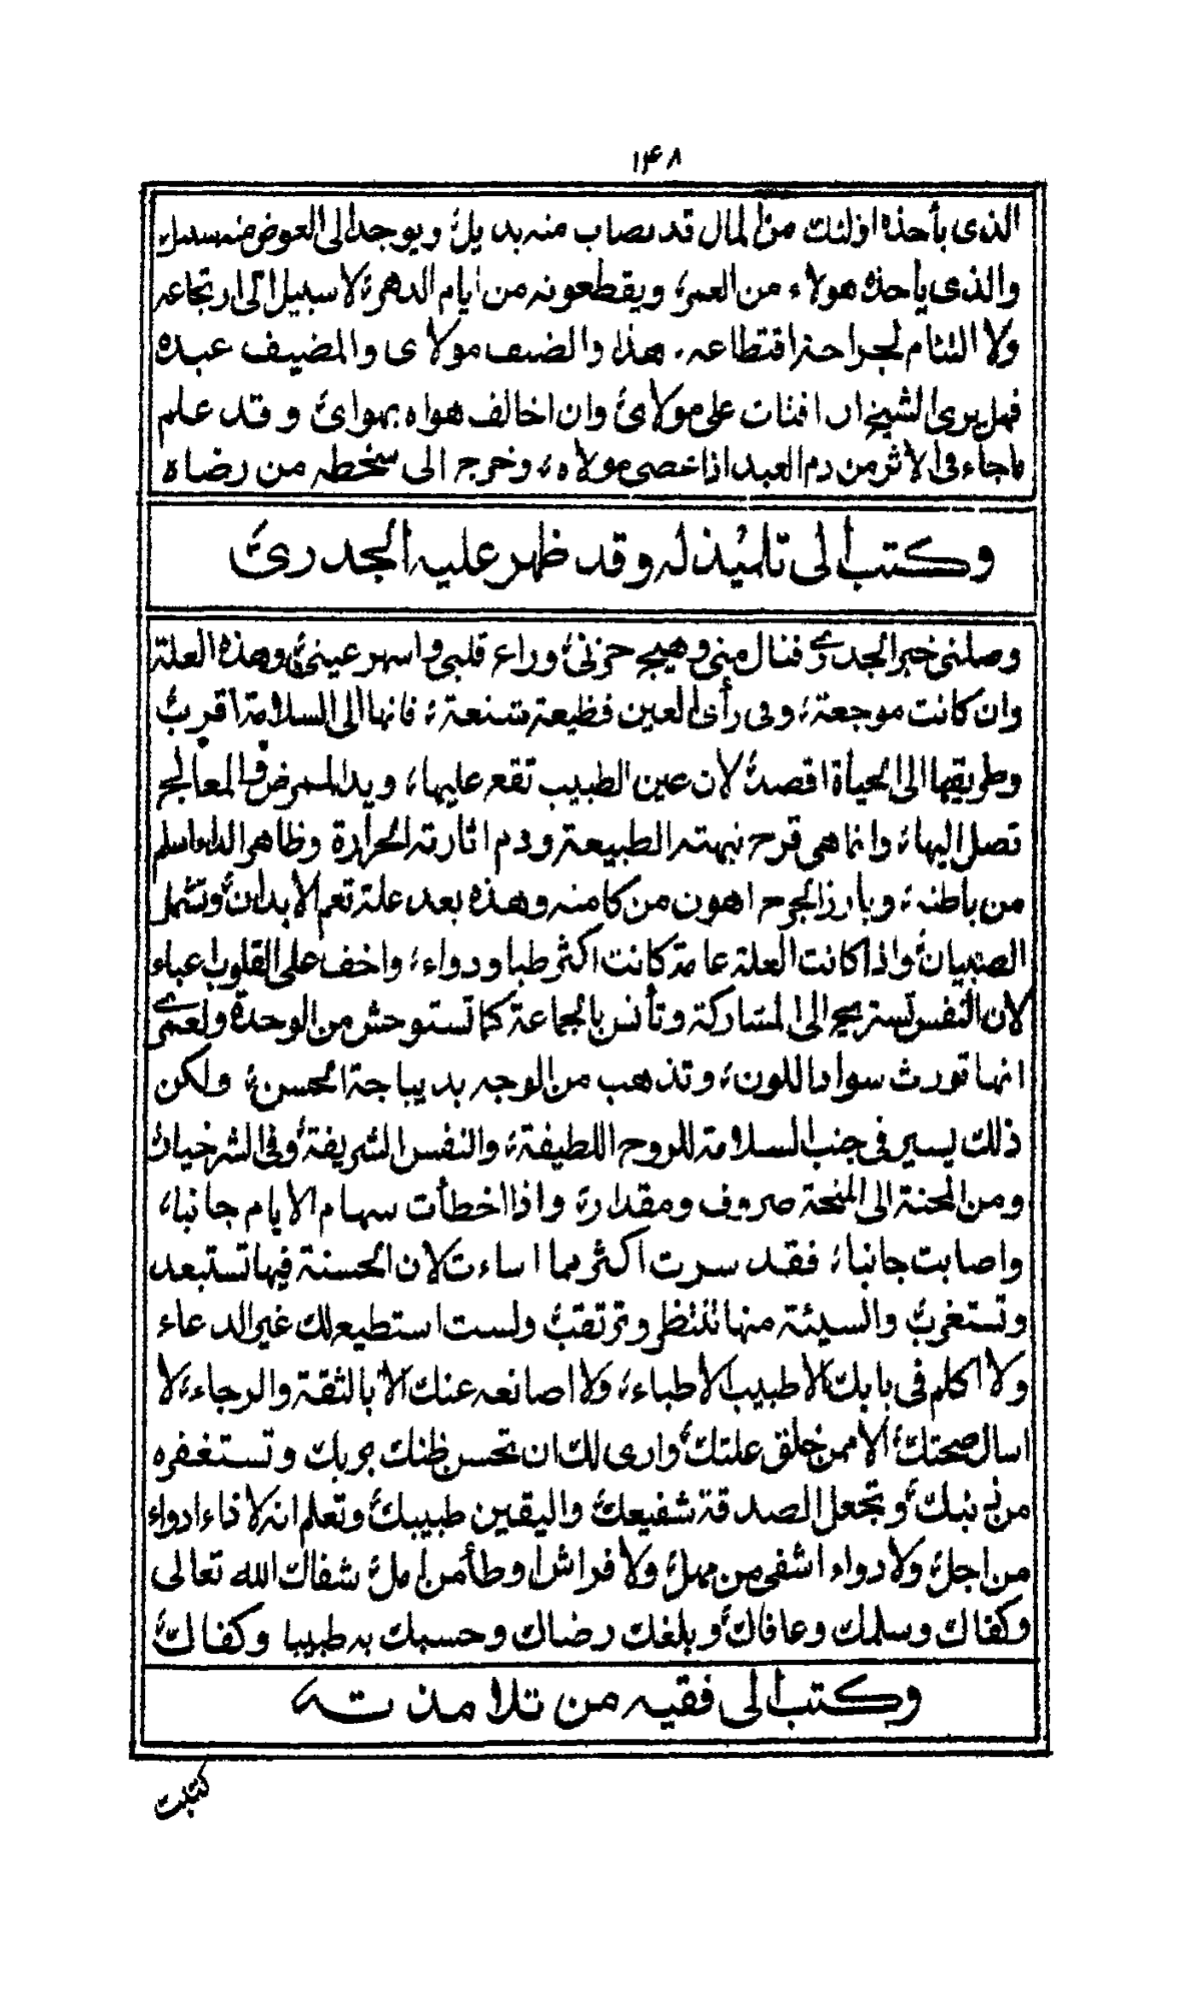 ١٤٨
الذى يأخذه اولئك من المال قد يصاب منه بديل، ويوجد الى العوض منه سبيل
والذى يأخذه هولاء من العمر، ويقطعونه من ايام الدهر، لا سبيل الى ارتجاعه
ولا التئام لجراحة اقتطاعه، هذا والضيف مولاى والمضيف عبده
فهل يرى الشيخ ان افتات على مولائ وان اخالف هواه بهوائ وقد علم
ماجاء فى الاثر من دم العبد اذا عصى مولاه، وخرج الى سخطه من رضاه
وكتب الى تلميذ له وقد ظهر عليه الجدرى
وصلنى خبر الجدرى فنال منى وهيج حزنى، وراع قلبى واسهر عينى، وهذه العلة
وان كانت موجعة، وفى رأى العين فظيعة شنعة، فانها الى السلامة اقرب
وطريقها الى الحياة اقصد، لان عين الطبيب تقع عليها، ويد الممرض والمعالج
تصل اليها، وانما هى قرح نبهته الطبيعة ودم اثارته الحرارة وظاهر الداء اسلم
من باطنه، وبارز الجرح اهون من كامنه وهذه بعد علة تعم الابدان، وتشمل
الصبيان، واذا كانت العلة عامة كانت اكثر طبا ودواء، واخف على القلوب اعباء
لان النفس تستريح الى المشاركة وتأنس بالجماعة كما تستوحش من الوحدة ولعمرى
انها تورث سواد اللون، وتذهب من الوجه بديباجة الحسن، ولكن
ذلك يسير فى جنب السلامة للروح اللطيفة، والنفس الشريفة، وفى الشر خيار
ومن المحنة الى المنحة صروف ومقدار، واذا اخطأت سهام الايام جانبا،
واصابت جانبا، فقد سرت اكثر مما اساءت لان الحسنة فيها تستبعد
وتستغرب والسيئة منها تنتظر وترتقب ولست استطيع لك غير الدعاء
ولا اكلم فى بابك الا طبيب الاطباء، ولا اصانعه عنك الا بالثقة والرجاء، لا
اسال صحتك، الا ممن خلق علتك، وارى لك ان تحسن ظنك بربك وتستغفره
من ذنبك، وتجعل الصدقة شفيعك واليقين طبيبك، وتعلم انه لا داء ادواء
من اجل، ولا دواء اشفى من مهل، ولا فراش اوطأ من امل، شفاك الله تعالى
وكفاك وسلمك وعافاك، وبلغك رضاك وحسبك به طبيبا وكفاك
وكتب الى فقيه من تلامذته
كتبت